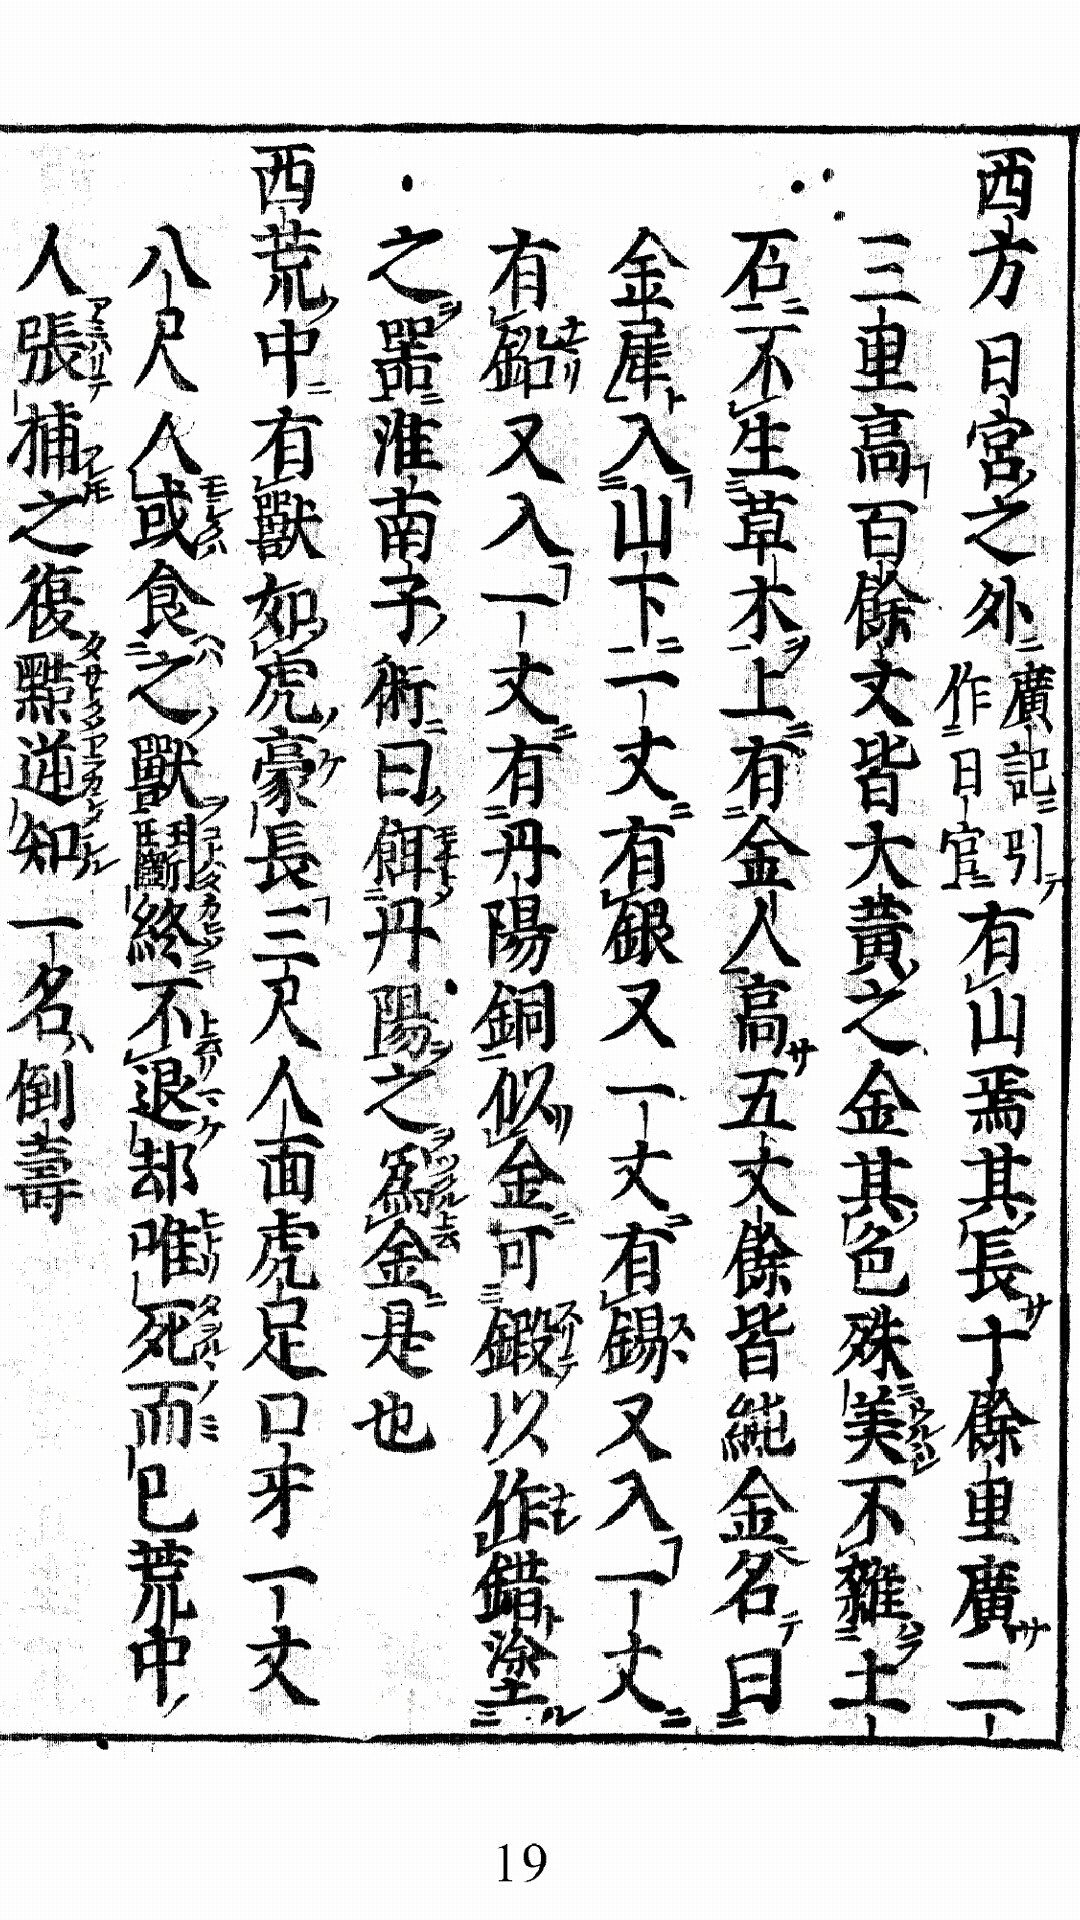 西方日宮之外廣記引作日官有山焉其長十餘里廣二
三里高百餘丈皆大黃之金其色殊美不雜土
石不生草木上有金人高五丈餘皆純金名曰
金犀入山下一丈有銀又一丈有錫又入一丈
有鉛又入一丈有丹陽銅似金可鍛以作錯塗
之器淮南子術曰餌丹陽之爲金是也
西荒中有獸如虎豪長三尺人面虎足口牙一丈
八尺人或食之獸鬭終不退却唯死而已荒中
人張捕之復黠逆知一名倒壽
19